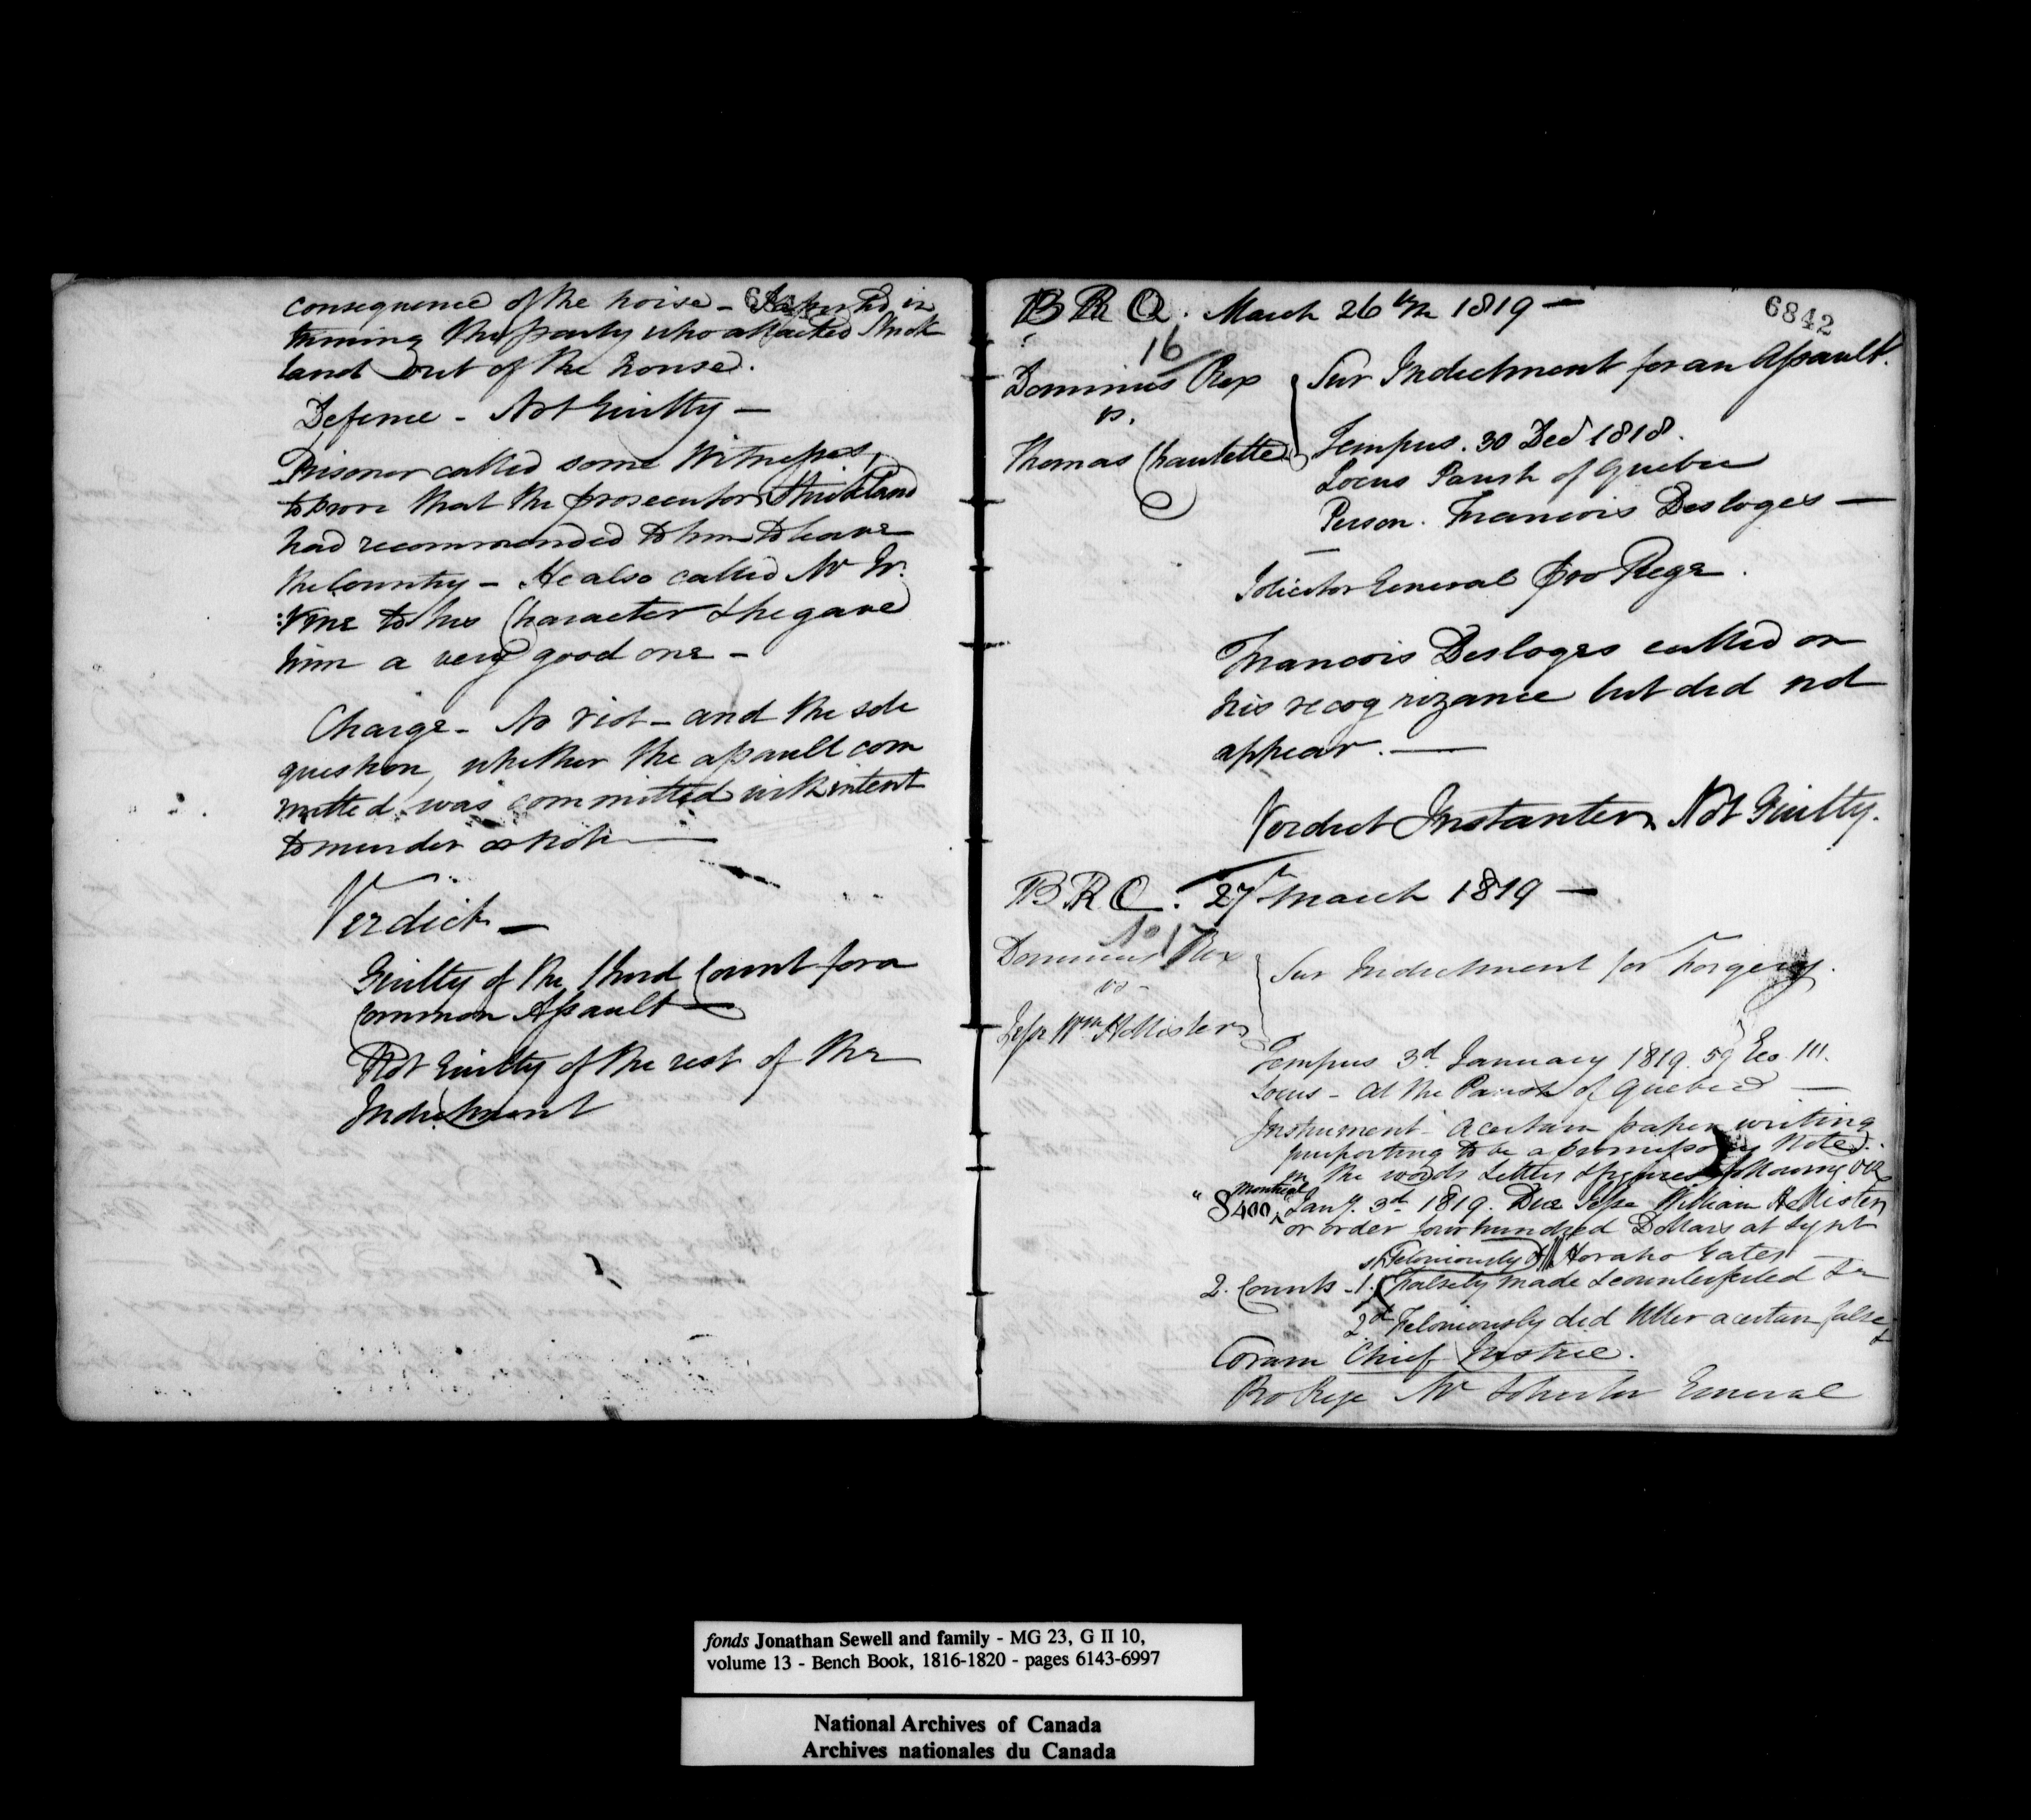 consequence of the noise – He assisted in
turning the party who attacked Strick
land out of the house.
Defence – Not Guilty –
Prisoner called some Witnesses,
to prove that the prosecutor Strickland
had recommended to him to leave
the Country – He also called Mr Ir:
:vine to his Character & he gave
him a very good one –
Charge – No riot – and the sole
question, whether the assault com
mitted was committed with intent
to murder or not –
Verdict –
Guilty of the third Count for a
Common Assault –
Not Guilty of the rest of the
Indictment
6842
B R Q. March 26th 1819 –
16
Dominus Rex
vs.
Thomas Chaulette
Sur Indictment for an Assault.
Tempus. 30 Decr 1818.
Locus Parish of Quebec
Person. Francois Desloges –
Solicitor General pro Rege.
Francois Desloges called on
his recognizance but did not
appear. –
Verdict Instanter Not Guilty.
B R Q. 27 March 1819 –
No 17
Dominus Rex
vs –
Jesse Wm Hollister
Sur Indictment for Forgery.
Tempus 3d January 1819. 59 Geo. III.
Locus – at the Parish of Quebec –
Instrument – A certain paper writing
purporting to be a promissory Note
in the words Letters & figures following viz
Montreal
"$400. Jany. 3d 1819. Due Jesse William Hollister
or order four hundred Dollars at sight
Feloniously Horatio Gates
2. Counts – 1. falsely made & counterfeited &c
2d Feloniously did Utter a certain false &
Coram Chief Justice.
Pro Rege Mr Solicitor General
fonds Jonathan Sewell and family - MG 23, G II 10,
volume 13 - Bench Book, 1816-1820 - pages 6143-6997
National Archives of Canada
Archives nationales du Canada